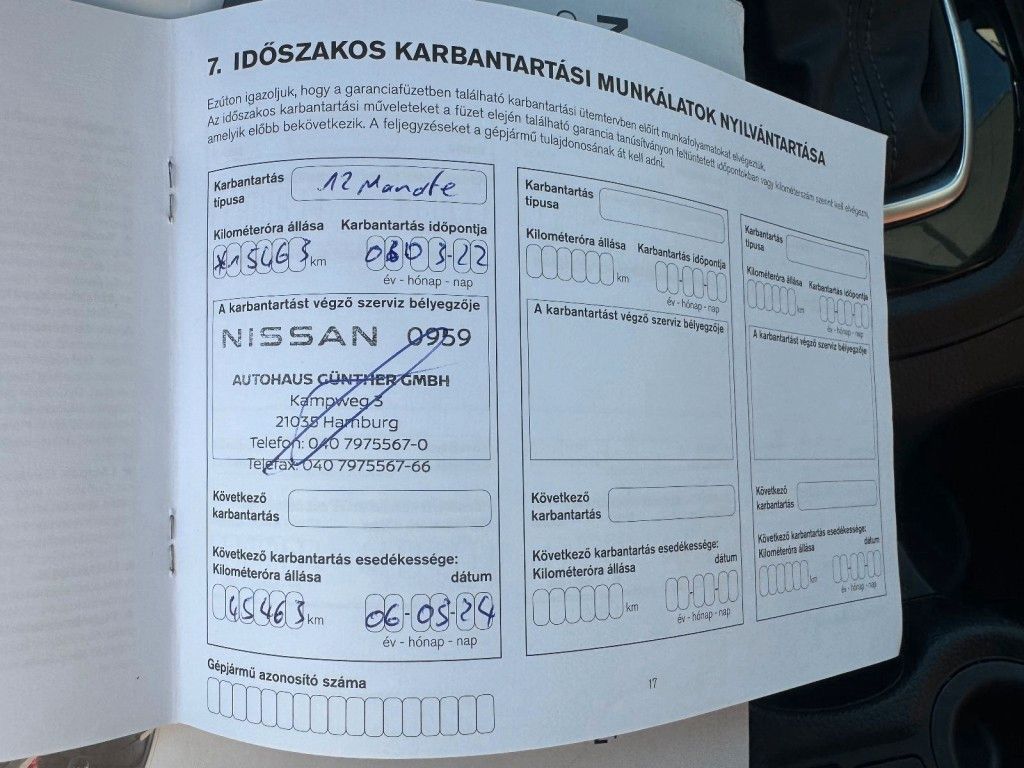 7. IDŐSZAKOS KARBANTARTÁSI MUNKÁLATOK NYILVÁNTARTÁSA
Ezúton igazoljuk, hogy a garanciafüzetben található karbantartási ütemtervben előírt munkafolyamatokat elvégeztük.
Az időszakos karbantartási műveleteket a füzet elején található garancia tanúsítványon feltüntetett időpontokban vagy kilométerszám szerint kell elvégezni,
amelyik előbb bekövetkezik. A feljegyzéseket a gépjármű tulajdonosának át kell adni.
Karbantartás típusa
12 Monate
Kilométeróra állása
Karbantartás időpontja
15463 km
03-22
év - hónap - nap
A karbantartást végző szerviz bélyegzője
NISSAN 0959
AUTOHAUS GÜNTHER GMBH
Kampweg 3
21035 Hamburg
Telefon: 040 7975567-0
Telefax: 040 7975567-66
Következő karbantartás
Következő karbantartás esedékessége:
Kilométeróra állása
dátum
45463 km
06-03-24
év - hónap - nap
Karbantartás típusa
Kilométeróra állása
Karbantartás időpontja
km
év - hónap - nap
A karbantartást végző szerviz bélyegzője
Következő karbantartás
Következő karbantartás esedékessége:
Kilométeróra állása
dátum
km
év - hónap - nap
Karbantartás típusa
Kilométeróra állása
Karbantartás időpontja
km
év - hónap - nap
A karbantartást végző szerviz bélyegzője
Következő karbantartás
Következő karbantartás esedékessége:
Kilométeróra állása
dátum
km
év - hónap - nap
Gépjármű azonosító száma
17